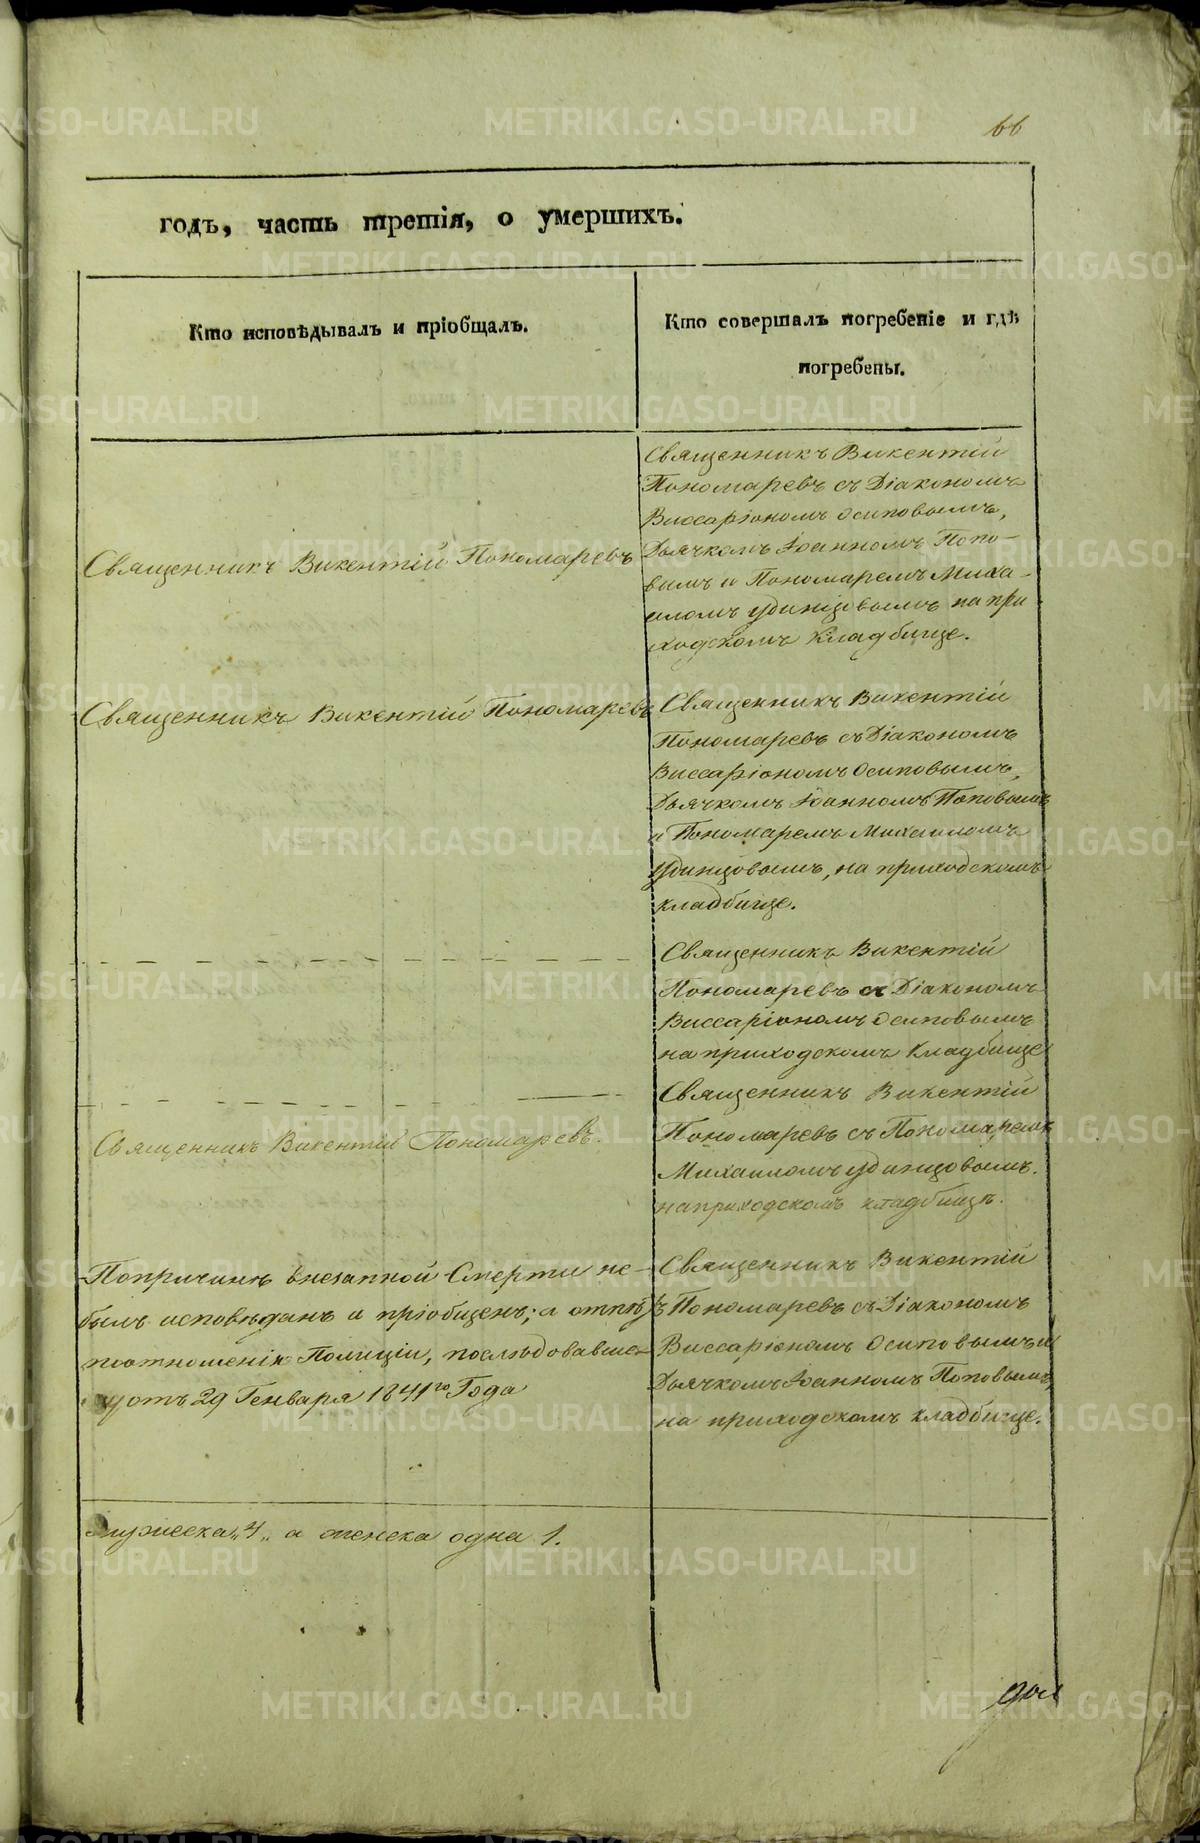 66
годъ, часть третія, о умершихъ.
Кто исповѣдывалъ и пріобщалъ.
Кто совершалъ погребеніе и гдѣ
погребены.
Священникъ Викентій Пономаревъ
Священникъ Викентій
Пономаревъ съ Діакономъ
Виссаріономъ Осиповымъ,
Дьячкомъ Іоанномъ Попо-
вымъ и Пономаремъ Миха-
иломъ Удинцовымъ на при
ходскомъ кладбище.
Священникъ Викентій Пономаревъ
Священникъ Викентій
Пономаревъ съ Діакономъ
Виссаріономъ Осиповымъ,
Дьячкомъ Іоанномъ Поповымъ
и Пономаремъ Михаиломъ
Удинцовымъ, на приходскомъ
кладбище.
Священникъ Викентій
Пономаревъ съ Діакономъ
Виссаріономъ Осиповымъ
на приходскомъ кладбище
Священникъ Викентій Пономаревъ.
Священникъ Викентій
Пономаревъ съ Пономаремъ
Михаиломъ Удинцовымъ.
на приходскомъ кладбищѣ.
По причинѣ внезапной Смерти не-
былъ исповѣданъ и пріобщенъ; а отпѣтъ
по отношенію Полиціи, послѣдовавше-
му отъ 29 Генваря 1841го Года
Священникъ Викентій
Пономаревъ съ Діакономъ
Виссаріономъ Осиповымъ и
Дьячкомъ Іоанномъ Поповымъ,
на приходскомъ кладбище.
Мужеска „4„ а женска одна 1.
METRIKI.GASO-URAL.RU